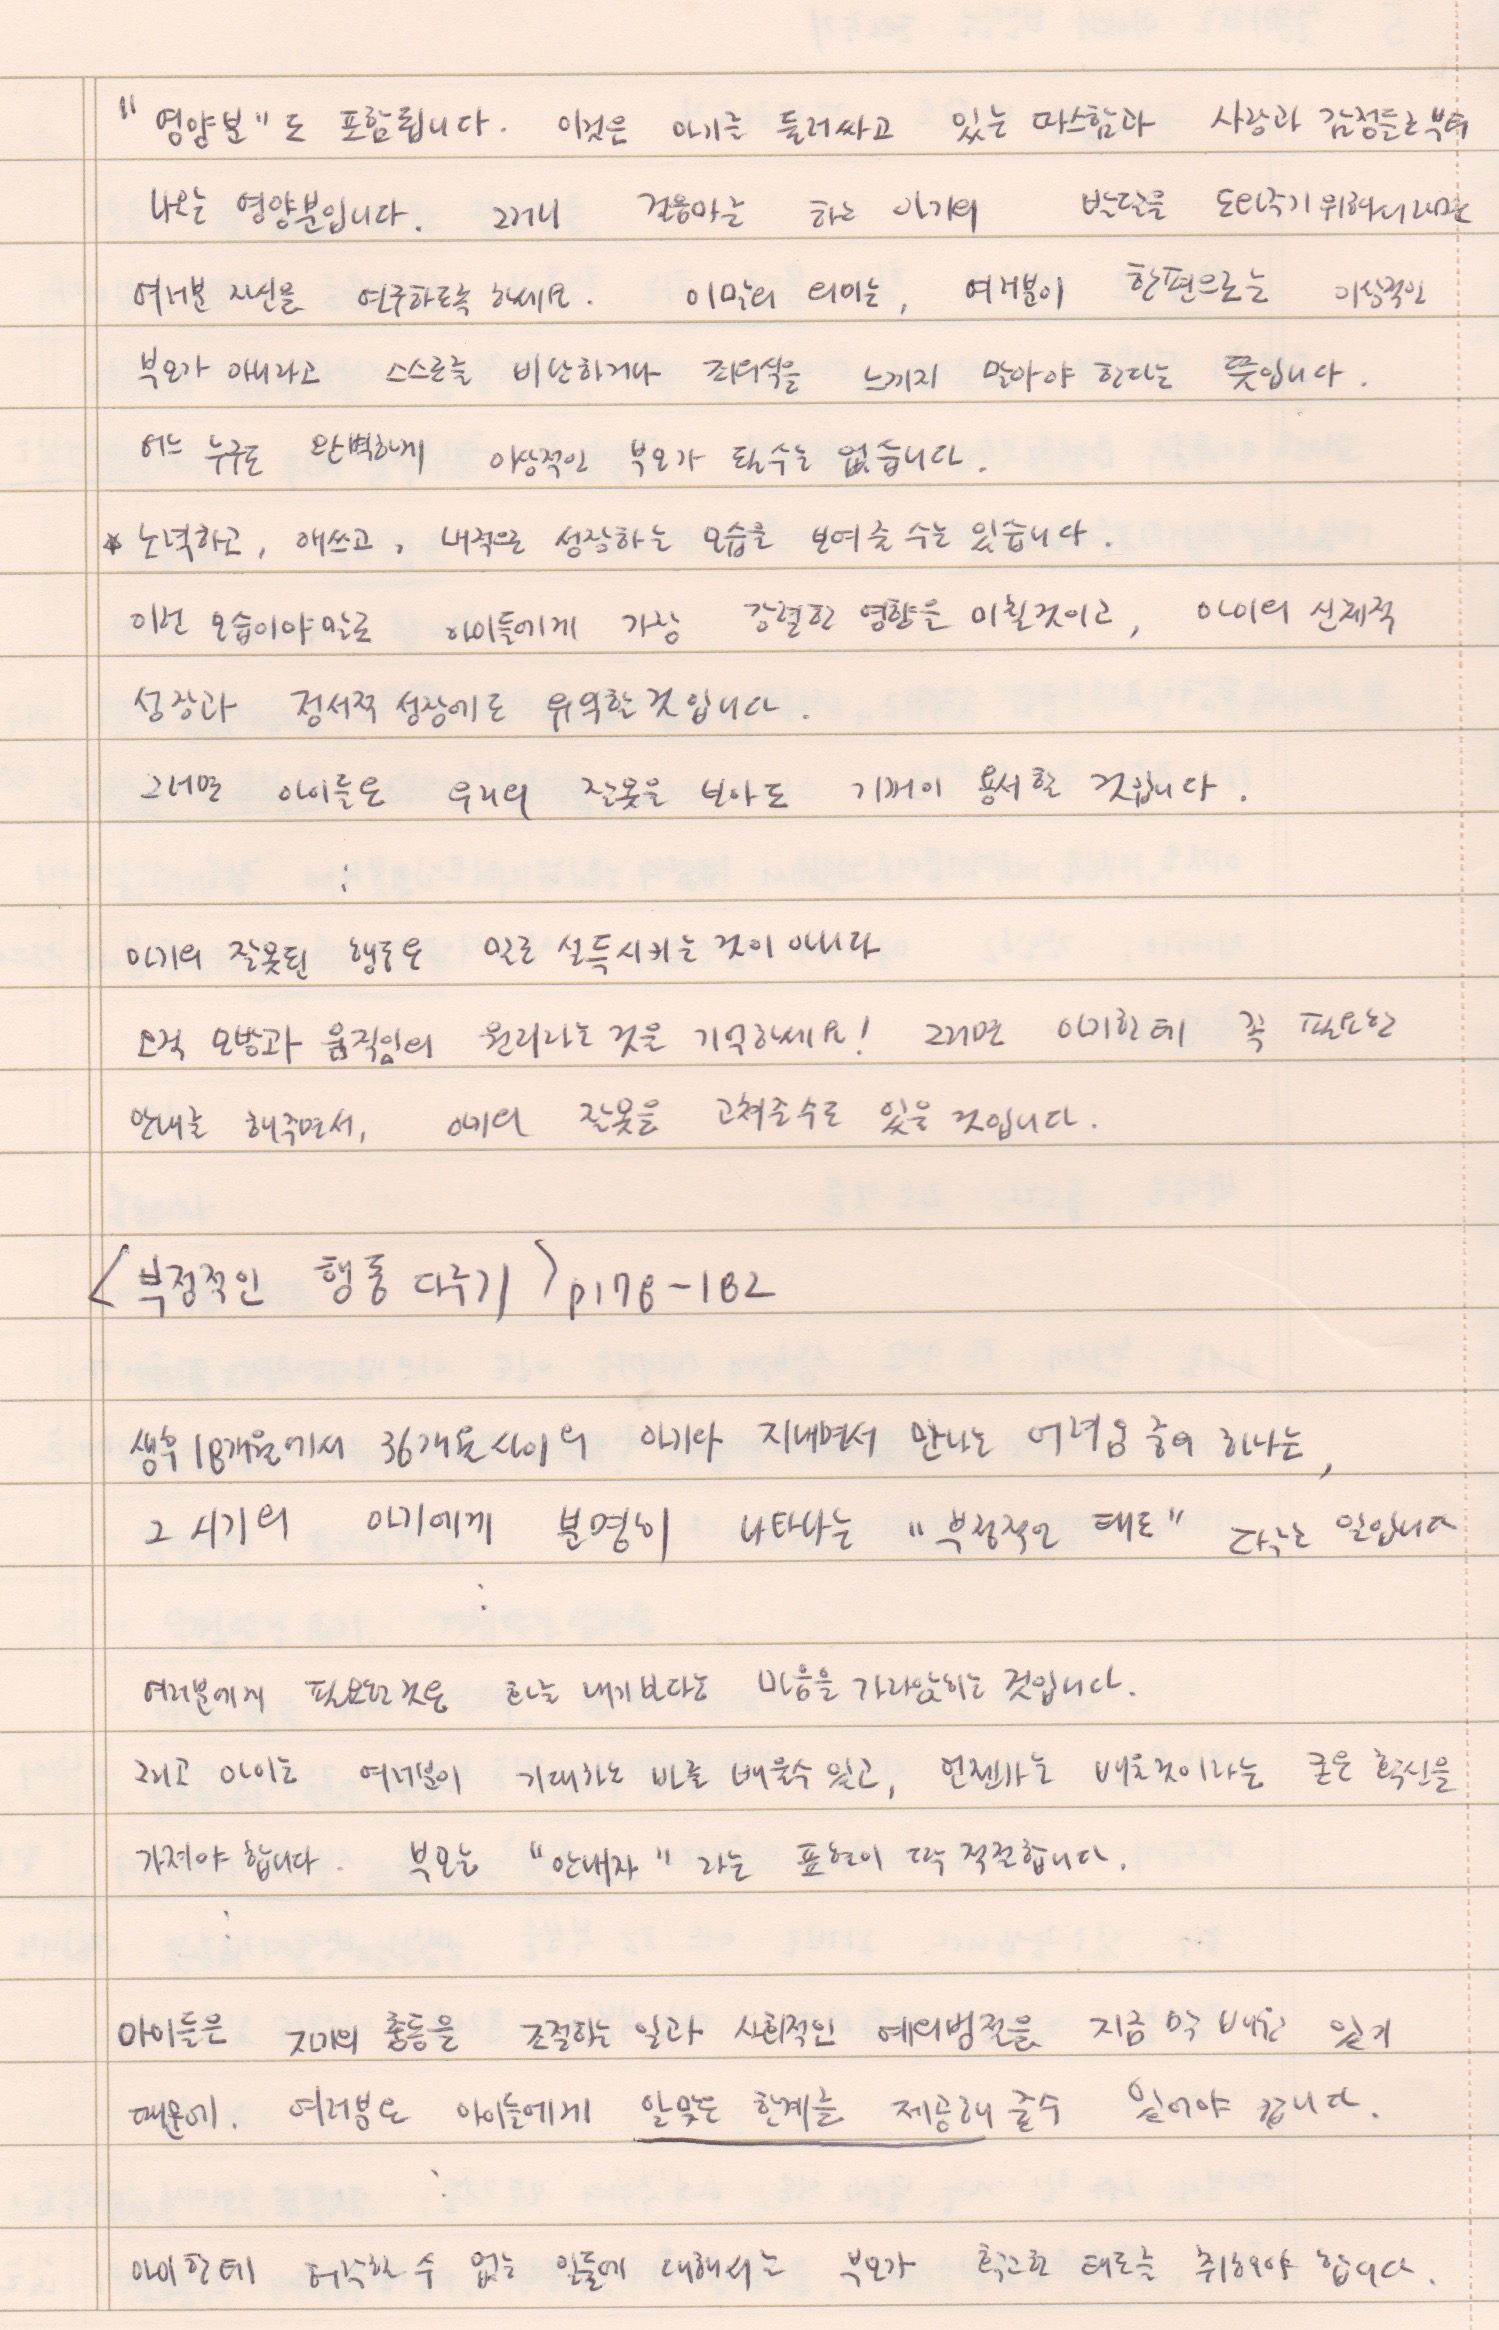 "영양분"도 포함됩니다. 이것은 아기를 둘러싸고 있는 따스함과 사랑과 감정들로부터
나오는 영양분입니다. 그러니 걸음마를 하는 아기의 발달을 도와주기 위해서라면
여러분 자신을 연구하도록 하세요. 이말의 의미는, 여러분이 한편으로는 이상적인
부모가 아니라고 스스로를 비난하거나 죄의식을 느끼지 말아야 한다는 뜻입니다.
어느 누구도 완벽하게 이상적인 부모가 될수는 없습니다.
* 노력하고, 애쓰고, 내적으로 성장하는 모습을 보여줄 수는 있습니다.
이런 모습이야말로 아이들에게 가장 강렬한 영향을 미칠것이고, 아이의 신체적
성장과 정서적 성장에도 유익할 것입니다.
그러면 아이들은 우리의 잘못을 보아도 기꺼이 용서할 것입니다.
:
아기의 잘못된 행동은 말로 설득시키는 것이 아니라
오직 모방과 움직임의 원리라는 것을 기억하세요! 그러면 아기한테 꼭 필요한
안내를 해주면서, 아기의 잘못을 고쳐줄수도 있을 것입니다.
<부정적인 행동 다루기> p178-182
생후 18개월에서 36개월 사이의 아기와 지내면서 만나는 어려움 중의 하나는,
그 시기의 아기에게 분명히 나타나는 "부정적인 태도" 다루는 일입니다
:
여러분에게 필요한것은 화를 내기보다는 마음을 가라앉히는 것입니다.
그리고 아이는 여러분이 기대하는 바를 배울수 있고, 언젠가는 배울것이라는 굳은 확신을
가져야 합니다. 부모는 "안내자"라는 표현이 딱 적절합니다.
:
아이들은 자기의 충동을 조절하는 일과 사회적인 예의범절을 지금 막 배우고 있기
때문에. 여러분은 아이들에게 알맞은 한계를 제공해 줄수 있어야 합니다.
:
아이한테 허락할 수 없는 일들에 대해서는 부모가 확고한 태도를 취하여야 합니다.